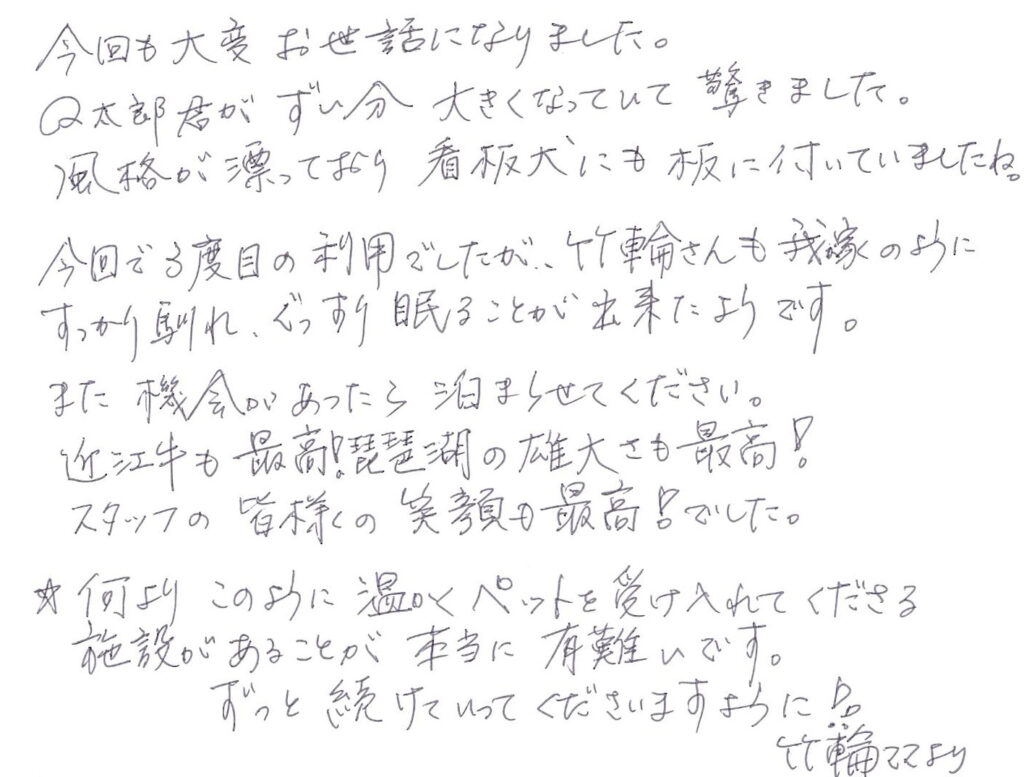 今回も大変お世話になりました。
Q太郎君がずい分大きくなっていて驚きました。
風格が漂っており看板犬にも板に付いていましたね。
今回で3度目の利用でしたが、竹輪さんも我家のように
すっかり馴れ、ぐっすり眠ることが出来たようです。
また機会があったら泊まらせてください。
近江牛も最高!琵琶湖の雄大さも最高!
スタッフの皆様の笑顔も最高!でした。
☆何よりこのように温かくペットを受け入れてくださる
施設があることが本当に有難いです。
ずっと続けていってくださいますように!
竹輪ママより